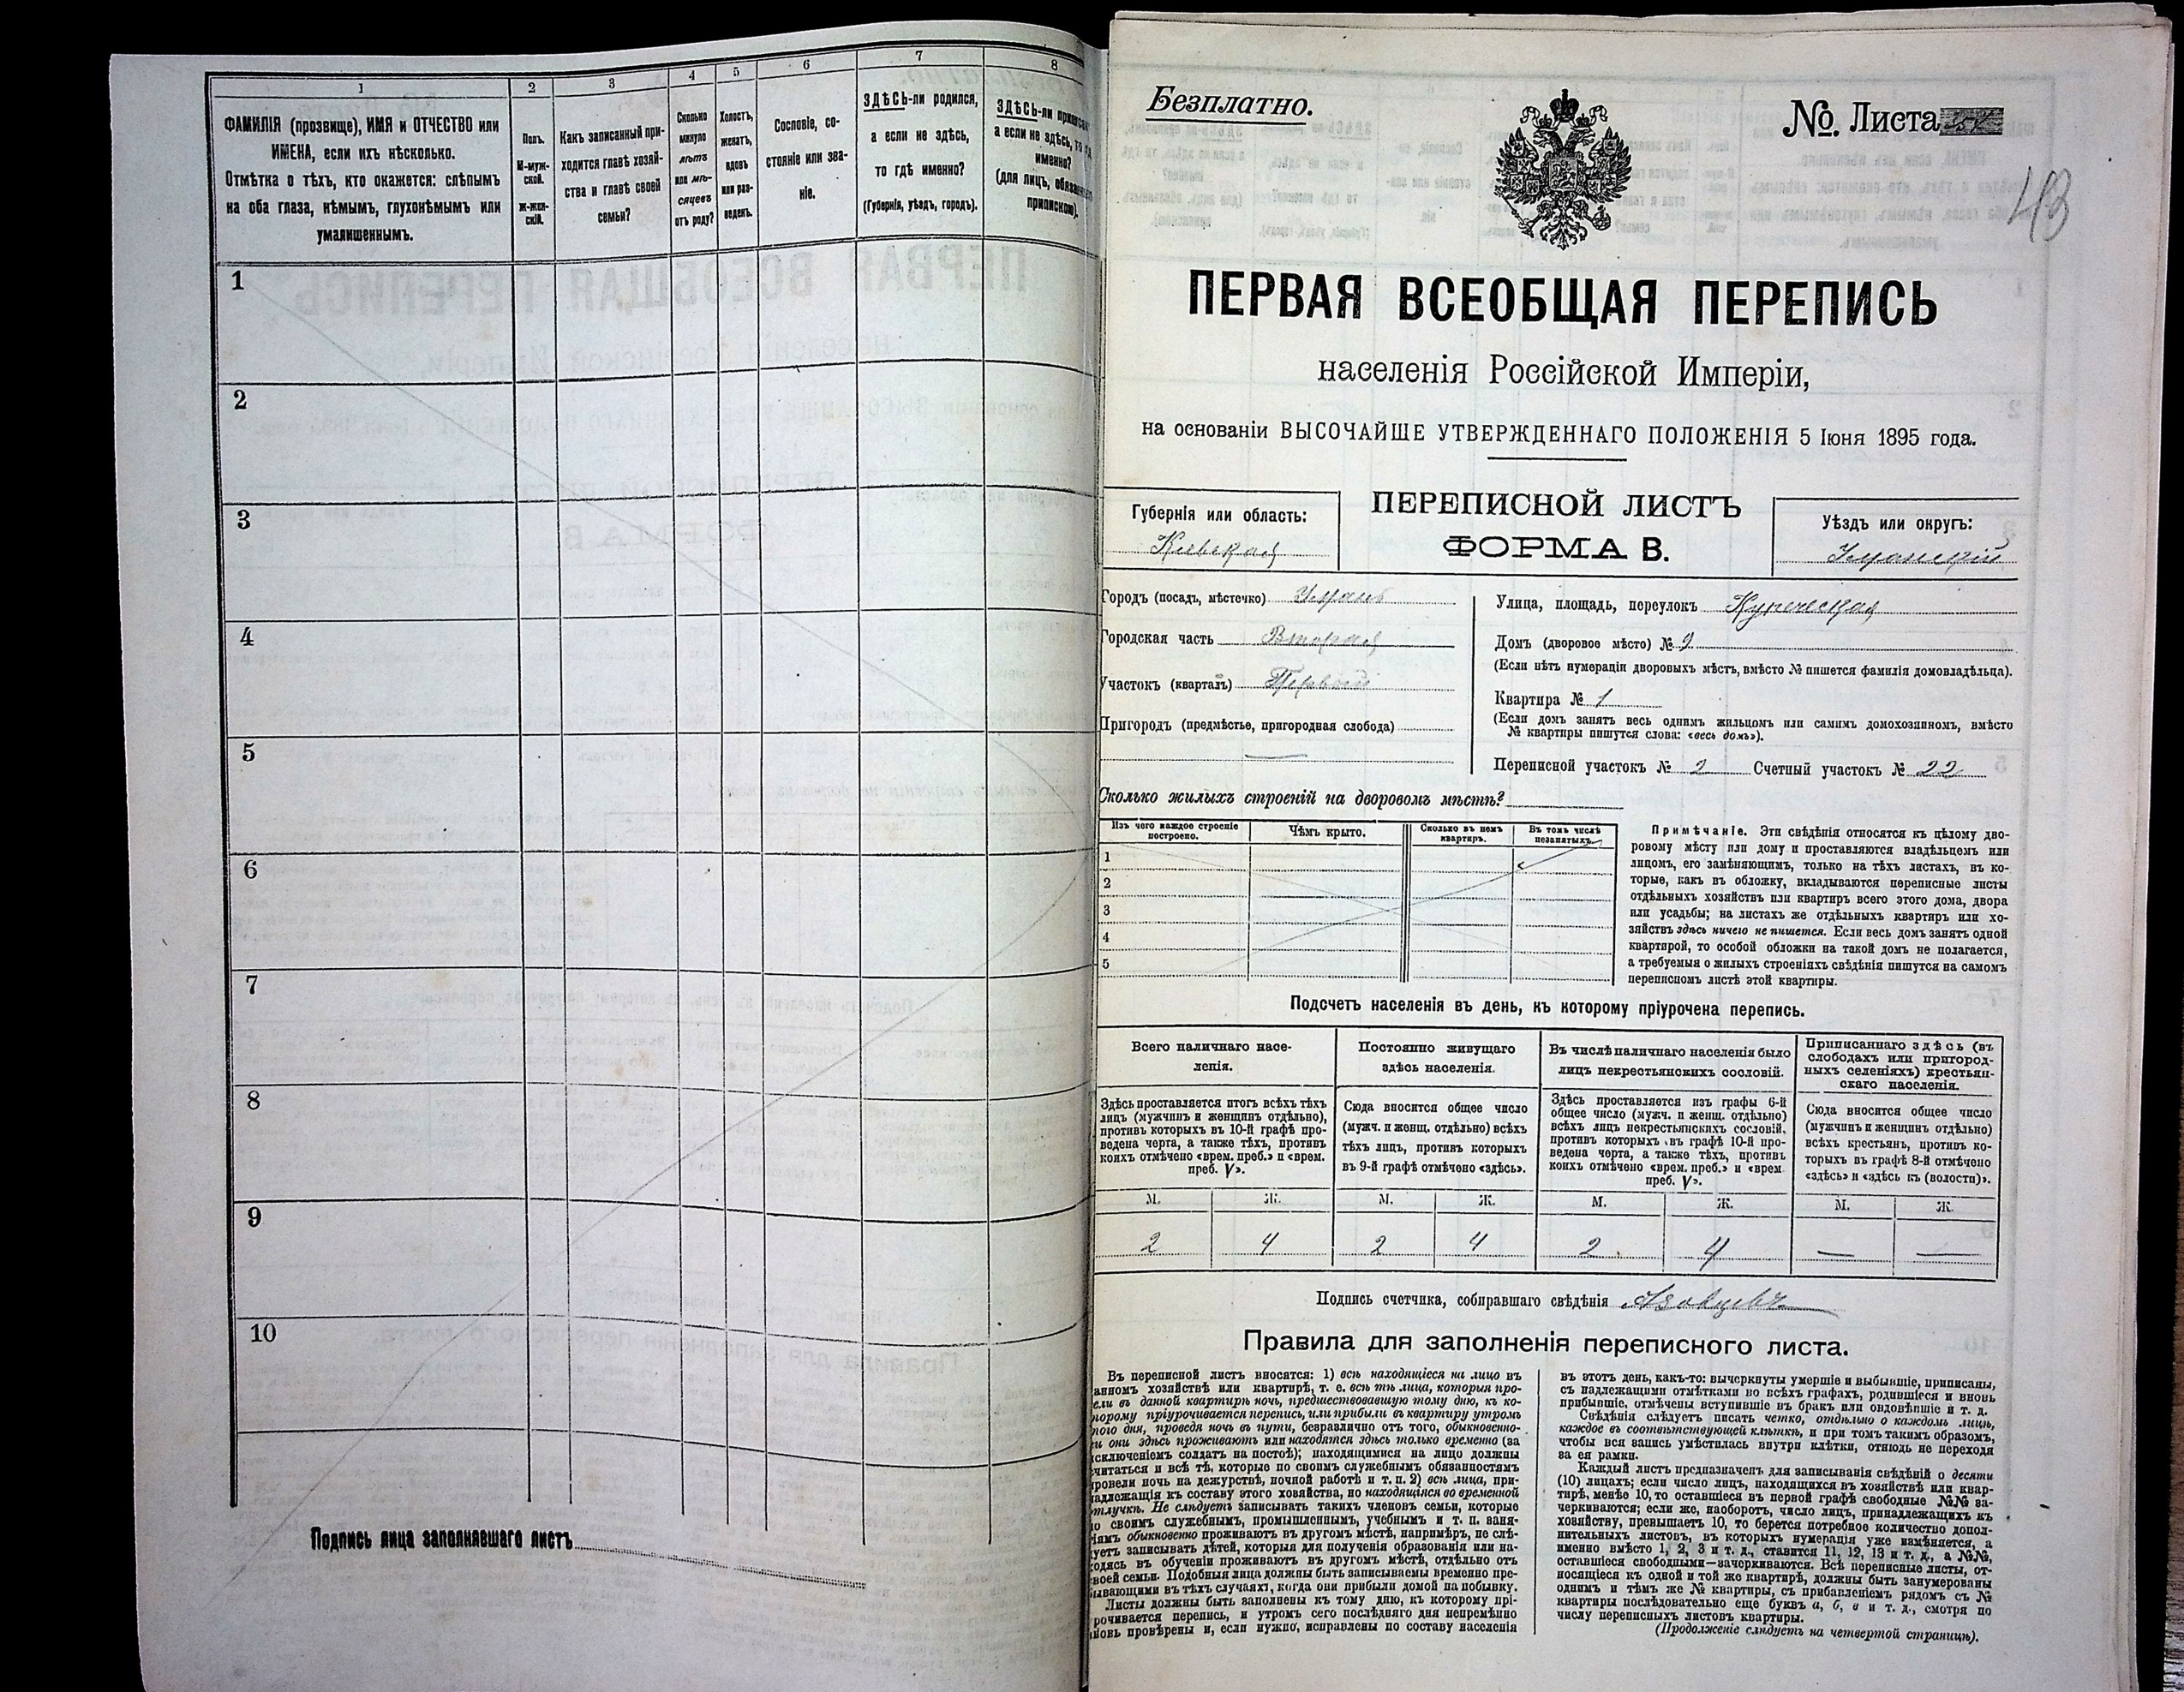 1
2
3
4
5
6
7
8
ФАМИЛІЯ (прозвище), ИМЯ и ОТЧЕСТВО или
ИМЕНА, если ихъ нѣсколько.
Отмѣтка о тѣхъ, кто окажется: слѣпымъ
на оба глаза, нѣмымъ, глухонѣмымъ или
умалишеннымъ.
Полъ.
М-муж-
ской.
ж-жен-
скій.
Какъ записанный при-
ходится главѣ хозяй-
ства и главѣ своей
семьи?
Сколько
минуло
лѣтъ
или мѣ-
сяцевъ
отъ роду?
Холостъ,
женатъ,
вдовъ
или раз-
веденъ.
Сословіе, со-
стояніе или зва-
ніе.
ЗДѢСЬ-ли родился,
а если не здѣсь,
то гдѣ именно?
(Губернія, уѣздъ, городъ).
ЗДѢСЬ-ли
а если не здѣсь, то
именно?
(для лицъ,
припискою).
1
2
3
4
5
6
7
8
9
10
Подпись лица заполнявшаго листъ
Безплатно.
№ Листа
ПЕРВАЯ ВСЕОБЩАЯ ПЕРЕПИСЬ
населенія Россійской Имперіи,
на основаніи ВЫСОЧАЙШЕ УТВЕРЖДЕННАГО ПОЛОЖЕНІЯ 5 Іюня 1895 года.
Губернія или область:
Кіевская
ПЕРЕПИСНОЙ ЛИСТЪ
ФОРМА В.
Уѣздъ или округъ:
Уманскій
Городъ (посадъ, мѣстечко) Умань
Городская часть Вторая
Участокъ (кварталъ) Первый
Пригородъ (предмѣстье, пригородная слобода)
Улица, площадь, переулокъ Купеческая
Домъ (дворовое мѣсто) № 9
(Если нѣтъ нумераціи дворовыхъ мѣстъ, вмѣсто № пишется фамилія домовладѣльца).
Квартира № 1
(Если домъ занятъ весь однимъ жильцомъ или самимъ домохозяиномъ, вмѣсто
№ квартиры пишутся слова: «весь домъ»).
Переписной участокъ № 2 Счетный участокъ № 22
Сколько жилыхъ строеній на дворовомъ мѣстѣ?
Изъ чего каждое строеніе
построено.
Чѣмъ крыто.
Сколько въ немъ
квартиръ.
Въ томъ числѣ
незанятыхъ.
1
2
3
4
5
Примѣчаніе. Эти свѣдѣнія относятся къ цѣлому дво-
ровому мѣсту или дому и проставляются владѣльцемъ или
лицомъ, его замѣняющимъ, только на тѣхъ листахъ, въ ко-
торые, какъ въ обложку, вкладываются переписные листы
отдѣльныхъ хозяйствъ или квартиръ всего этого дома, двора
или усадьбы; на листахъ же отдѣльныхъ квартиръ или хо-
зяйствъ здѣсь ничего не пишется. Если весь домъ занятъ одной
квартирой, то особой обложки на такой домъ не полагается,
а требуемыя о жилыхъ строеніяхъ свѣдѣнія пишутся на самомъ
переписномъ листѣ этой квартиры.
Подсчетъ населенія въ день, къ которому пріурочена перепись.
Всего наличнаго насе-
ленія.
Постоянно живущаго
здѣсь населенія.
Въ числѣ наличнаго населенія было
лицъ некрестьянскихъ сословій.
Приписаннаго здѣсь (въ
слободахъ или пригород-
ныхъ селеніяхъ) крестьян-
скаго населенія.
Здѣсь проставляется итогъ всѣхъ тѣхъ
лицъ (мужчинъ и женщинъ отдѣльно),
противъ которыхъ въ 10-й графѣ про-
ведена черта, а также тѣхъ, противъ
коихъ отмѣчено «врем. преб.» и «врем.
преб. V».
Сюда вносится общее число
(мужч. и женщ. отдѣльно) всѣхъ
тѣхъ лицъ, противъ которыхъ
въ 9-й графѣ отмѣчено «здѣсь».
Здѣсь проставляется изъ графы 6-й
общее число (мужч. и женщ. отдѣльно)
всѣхъ лицъ некрестьянскихъ сословій,
противъ которыхъ въ графѣ 10-й про-
ведена черта, а также тѣхъ, противъ
коихъ отмѣчено «врем. преб.» и «врем.
преб. V».
Сюда вносится общее число
(мужчинъ и женщинъ отдѣльно)
всѣхъ крестьянъ, противъ ко-
торыхъ въ графѣ 8-й отмѣчено
«здѣсь» и «здѣсь къ (волости)».
М. Ж. М. Ж. М. Ж. М. Ж.
2 4 2 4 2 4 — —
Подпись счетчика, собиравшаго свѣдѣнія
Правила для заполненія переписного листа.
Въ переписной листъ вносятся: 1) всѣ находящіеся на лицо въ
анномъ хозяйствѣ или квартирѣ, т. е. всѣ тѣ лица, которыя про-
ели въ данной квартирѣ ночь, предшествовавшую тому дню, къ ко-
торому пріурочивается перепись, или прибыли въ квартиру утромъ
того дня, проведя ночь въ пути, безразлично отъ того, обыкновенно-
и они здѣсь проживаютъ или находятся здѣсь только временно (за
сключеніемъ солдатъ на постоѣ); находящимися на лицо должны
считаться и всѣ тѣ, которые по своимъ служебнымъ обязанностямъ
ровели ночь на дежурствѣ, ночной работѣ и т. п. 2) всѣ лица, при-
адлежащія къ составу этого хозяйства, но находящіяся во временной
отлучкѣ. Не слѣдуетъ записывать такихъ членовъ семьи, которые
о своимъ служебнымъ, промышленнымъ, учебнымъ и т. п. заня-
іямъ обыкновенно проживаютъ въ другомъ мѣстѣ, напримѣръ, не слѣ-
уетъ записывать дѣтей, которыя для полученія образованія или на-
одясь въ обученіи проживаютъ въ другомъ мѣстѣ, отдѣльно отъ
воей семьи. Подобныя лица должны быть записываемы временно пре-
ывающими въ тѣхъ случаяхъ, когда они прибыли домой на побывку.
Листы должны быть заполнены къ тому дню, къ которому прі-
рочивается перепись, и утромъ сего послѣдняго дня непремѣнно
новь провѣрены и, если нужно, исправлены по составу населенія
въ этотъ день, какъ-то: вычеркнуты умершіе и выбывшіе, приписаны,
съ надлежащими отмѣтками во всѣхъ графахъ, родившіеся и вновь
прибывшіе, отмѣчены вступившіе въ бракъ или овдовѣвшіе и т. д.
Свѣдѣнія слѣдуетъ писать четко, отдѣльно о каждомъ лицѣ,
каждое въ соотвѣтствующей клѣткѣ, и при томъ такимъ образомъ,
чтобы вся запись умѣстилась внутри клѣтки, отнюдь не переходя
за ея рамки.
Каждый листъ предназначенъ для записыванія свѣдѣній о десяти
(10) лицахъ; если число лицъ, находящихся въ хозяйствѣ или квар-
тирѣ, менѣе 10, то оставшіеся въ первой графѣ свободные №№ за-
черкиваются; если же, наоборотъ, число лицъ, принадлежащихъ къ
хозяйству, превышаетъ 10, то берется потребное количество допол-
нительныхъ листовъ, въ которыхъ нумерація уже измѣняется, а
именно вмѣсто 1, 2, 3 и т. д., ставится 11, 12, 13 и т. д., а №№,
оставшіеся свободными—зачеркиваются. Всѣ переписные листы, от-
носящіеся къ одной и той же квартирѣ, должны быть занумерованы
однимъ и тѣмъ же № квартиры, съ прибавленіемъ рядомъ съ №
квартиры послѣдовательно еще буквъ а, б, в и т. д., смотря по
числу переписныхъ листовъ квартиры.
(Продолженіе слѣдуетъ на четвертой страницѣ).